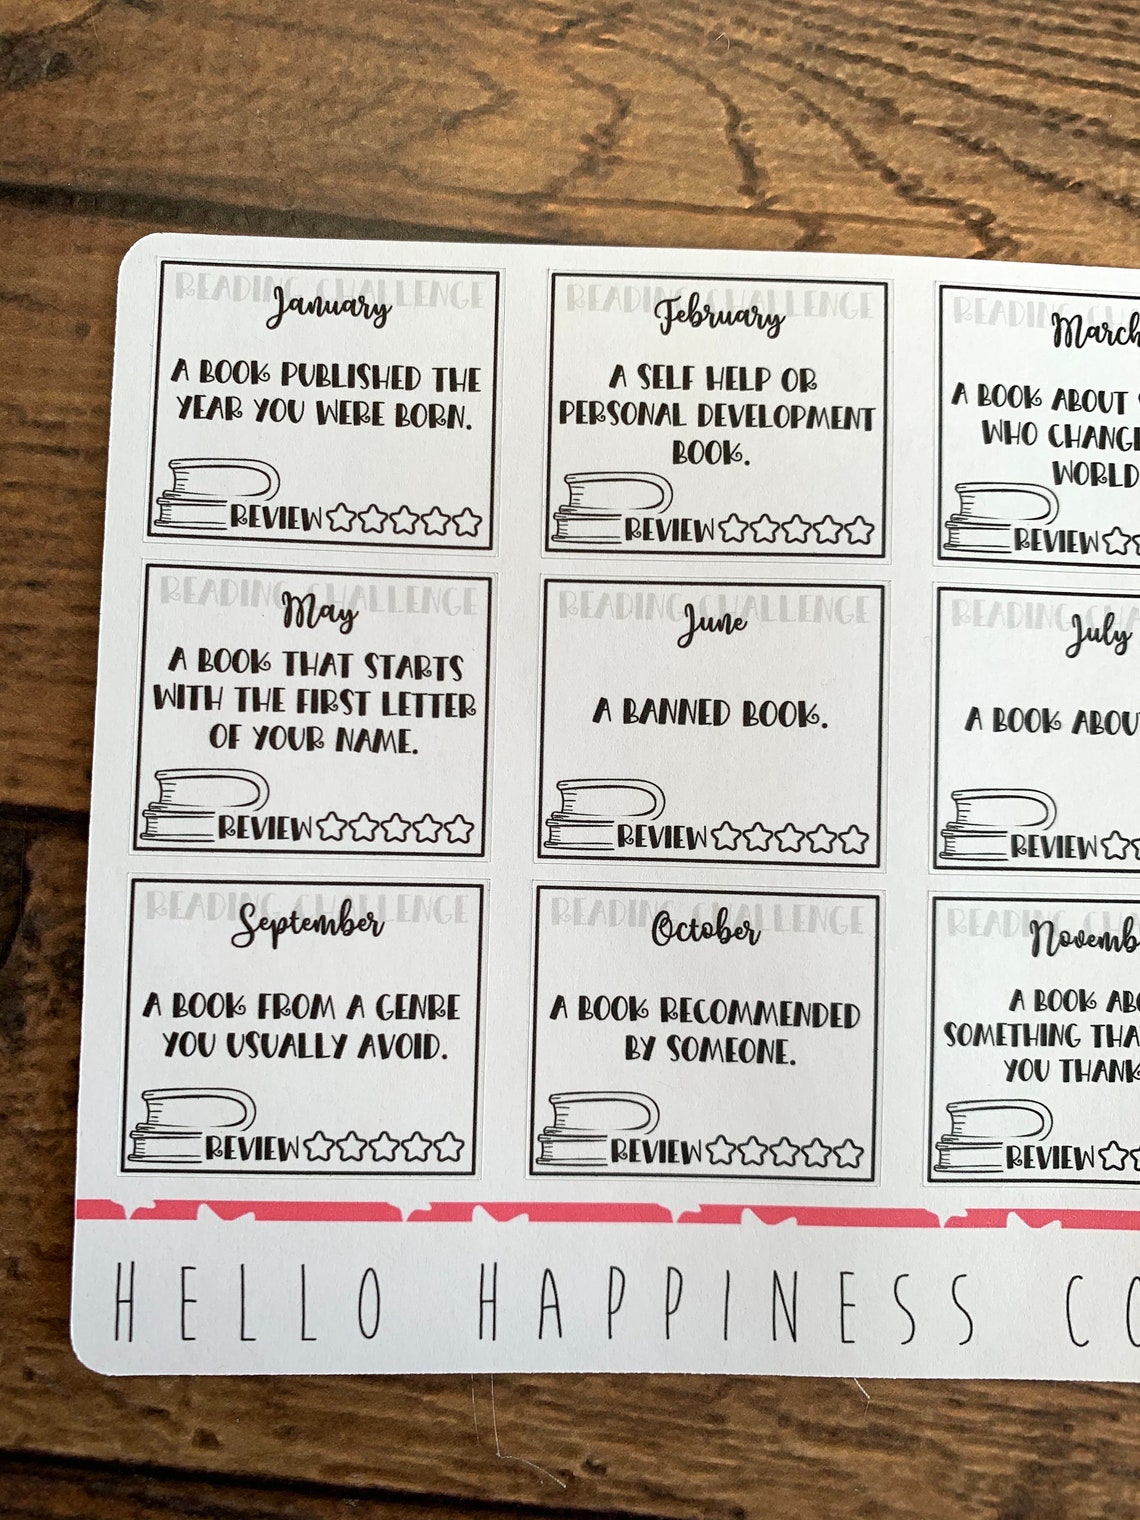 READING CHALLENGE
January
A BOOK PUBLISHED THE
YEAR YOU WERE BORN.
REVIEW
READING CHALLENGE
February
A SELF HELP OR
PERSONAL DEVELOPMENT
BOOK.
REVIEW
READING
March
A BOOK ABOUT
WHO CHANGE
WORLD
REVIEW
READING CHALLENGE
May
A BOOK THAT STARTS
WITH THE FIRST LETTER
OF YOUR NAME.
REVIEW
READING CHALLENGE
June
A BANNED BOOK.
REVIEW
READING CHA
July
A BOOK ABOU
REVIEW
READING CHALLENGE
September
A BOOK FROM A GENRE
YOU USUALLY AVOID.
REVIEW
READING CHALLENGE
October
A BOOK RECOMMENDED
BY SOMEONE.
REVIEW
READING CHA
Novemb
A BOOK ABO
SOMETHING THA
YOU THANK
REVIEW
HELLO HAPPINESS CO